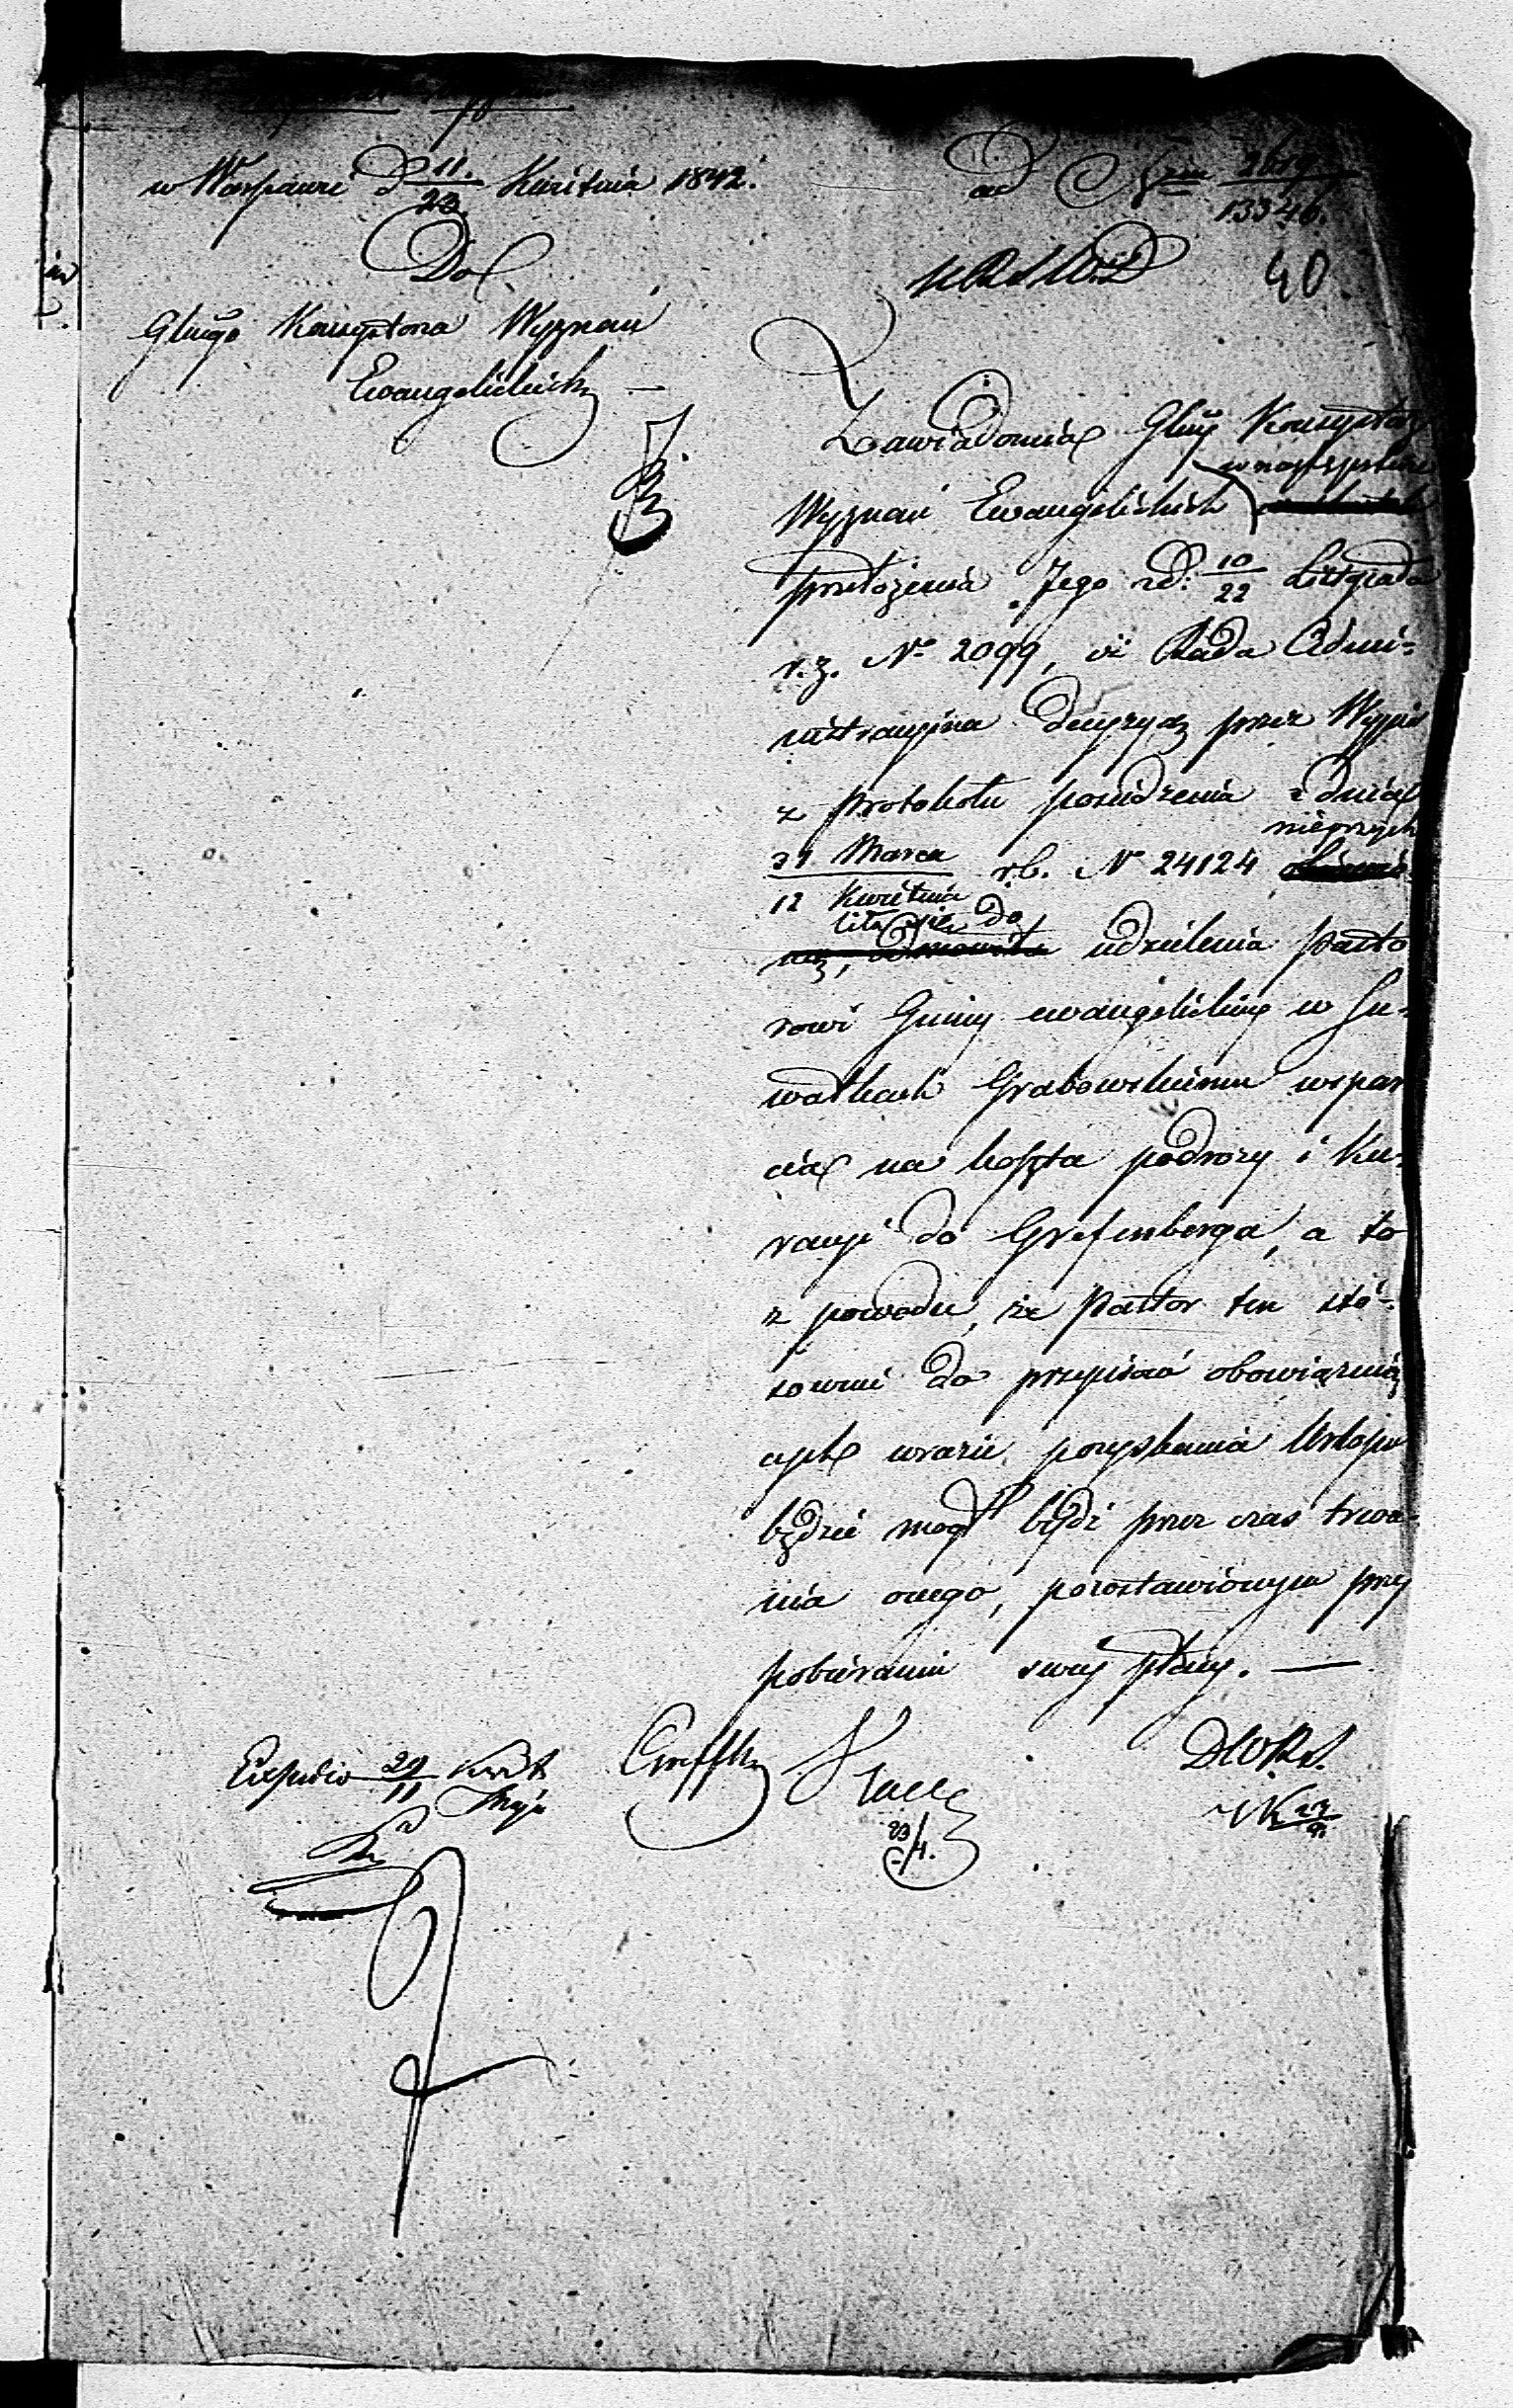 w Warszawie d 11./23. Kwietnia 1842.
ad N 2619/13346.
40.
Do
Głłgo Konsystorza Wyznań
Ewangelickich
Zawiadamia Głłny Konsystorz
w następstwie
Wyznań Ewangelickich
przełożenia Jego z d: 10/22 Listopada
r. z. No 2099, iż Rada Admi-
nistracyjna decyzyą przez Wypis
z protokołu posiedzenia z dnia
nieprzych
31 Marca/12 Kwietnia r. b. No 24124
liła się do
udzielenia Pasto
rowi Gminy ewangelickiej w Su-
wałkach Grabowskiemu wspar
cia na koszta podroży i Ku-
racyi do Grefenberga, a to
z powodu, że Pastor ten stó-
sownie do przepisów obowiązują
cych w razie pozyskania Urlopu
będzie mogł bydź przez czas trwa-
nia onego, pozostawionym przy
pobieraniu swej płacy. —
Expedio 29 Kwiet/11 Maja
23/4.
D.W.R.S.